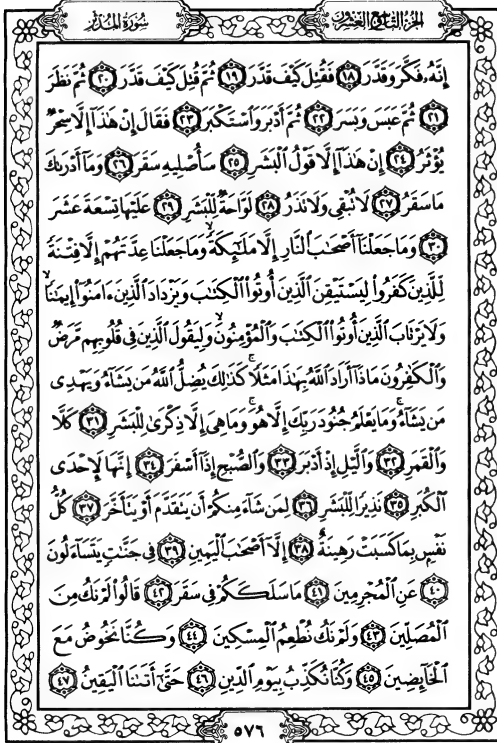 سُورَةُ المُدَّثِّر
الجُزءُ التَّاسِعُ وَالعِشرُون
إِنَّهُۥ فَكَّرَ وَقَدَّرَ ﴿١٨﴾ فَقُتِلَ كَيْفَ قَدَّرَ ﴿١٩﴾ ثُمَّ قُتِلَ كَيْفَ قَدَّرَ ﴿٢٠﴾ ثُمَّ نَظَرَ
﴿٢١﴾ ثُمَّ عَبَسَ وَبَسَرَ ﴿٢٢﴾ ثُمَّ أَدْبَرَ وَٱسْتَكْبَرَ ﴿٢٣﴾ فَقَالَ إِنْ هَٰذَآ إِلَّا سِحْرٌ
يُؤْثَرُ ﴿٢٤﴾ إِنْ هَٰذَآ إِلَّا قَوْلُ ٱلْبَشَرِ ﴿٢٥﴾ سَأُصْلِيهِ سَقَرَ ﴿٢٦﴾ وَمَآ أَدْرَىٰكَ
مَا سَقَرُ ﴿٢٧﴾ لَا تُبْقِى وَلَا تَذَرُ ﴿٢٨﴾ لَوَّاحَةٌ لِّلْبَشَرِ ﴿٢٩﴾ عَلَيْهَا تِسْعَةَ عَشَرَ
﴿٣٠﴾ وَمَا جَعَلْنَآ أَصْحَٰبَ ٱلنَّارِ إِلَّا مَلَٰٓئِكَةً ۙ وَمَا جَعَلْنَا عِدَّتَهُمْ إِلَّا فِتْنَةً
لِّلَّذِينَ كَفَرُوا۟ لِيَسْتَيْقِنَ ٱلَّذِينَ أُوتُوا۟ ٱلْكِتَٰبَ وَيَزْدَادَ ٱلَّذِينَ ءَامَنُوٓا۟ إِيمَٰنًا ۙ
وَلَا يَرْتَابَ ٱلَّذِينَ أُوتُوا۟ ٱلْكِتَٰبَ وَٱلْمُؤْمِنُونَ ۙ وَلِيَقُولَ ٱلَّذِينَ فِى قُلُوبِهِم مَّرَضٌ
وَٱلْكَٰفِرُونَ مَاذَآ أَرَادَ ٱللَّهُ بِهَٰذَا مَثَلًا ۚ كَذَٰلِكَ يُضِلُّ ٱللَّهُ مَن يَشَآءُ وَيَهْدِى
مَن يَشَآءُ ۚ وَمَا يَعْلَمُ جُنُودَ رَبِّكَ إِلَّا هُوَ ۚ وَمَا هِىَ إِلَّا ذِكْرَىٰ لِلْبَشَرِ ﴿٣١﴾ كَلَّا
وَٱلْقَمَرِ ﴿٣٢﴾ وَٱلَّيْلِ إِذْ أَدْبَرَ ﴿٣٣﴾ وَٱلصُّبْحِ إِذَآ أَسْفَرَ ﴿٣٤﴾ إِنَّهَا لَإِحْدَى
ٱلْكُبَرِ ﴿٣٥﴾ نَذِيرًا لِّلْبَشَرِ ﴿٣٦﴾ لِمَن شَآءَ مِنكُمْ أَن يَتَقَدَّمَ أَوْ يَتَأَخَّرَ ﴿٣٧﴾ كُلُّ
نَفْسٍۭ بِمَا كَسَبَتْ رَهِينَةٌ ﴿٣٨﴾ إِلَّآ أَصْحَٰبَ ٱلْيَمِينِ ﴿٣٩﴾ فِى جَنَّٰتٍ يَتَسَآءَلُونَ
﴿٤٠﴾ عَنِ ٱلْمُجْرِمِينَ ﴿٤١﴾ مَا سَلَكَكُمْ فِى سَقَرَ ﴿٤٢﴾ قَالُوا۟ لَمْ نَكُ مِنَ
ٱلْمُصَلِّينَ ﴿٤٣﴾ وَلَمْ نَكُ نُطْعِمُ ٱلْمِسْكِينَ ﴿٤٤﴾ وَكُنَّا نَخُوضُ مَعَ
ٱلْخَآئِضِينَ ﴿٤٥﴾ وَكُنَّا نُكَذِّبُ بِيَوْمِ ٱلدِّينِ ﴿٤٦﴾ حَتَّىٰٓ أَتَىٰنَا ٱلْيَقِينُ ﴿٤٧﴾
٥٧٦